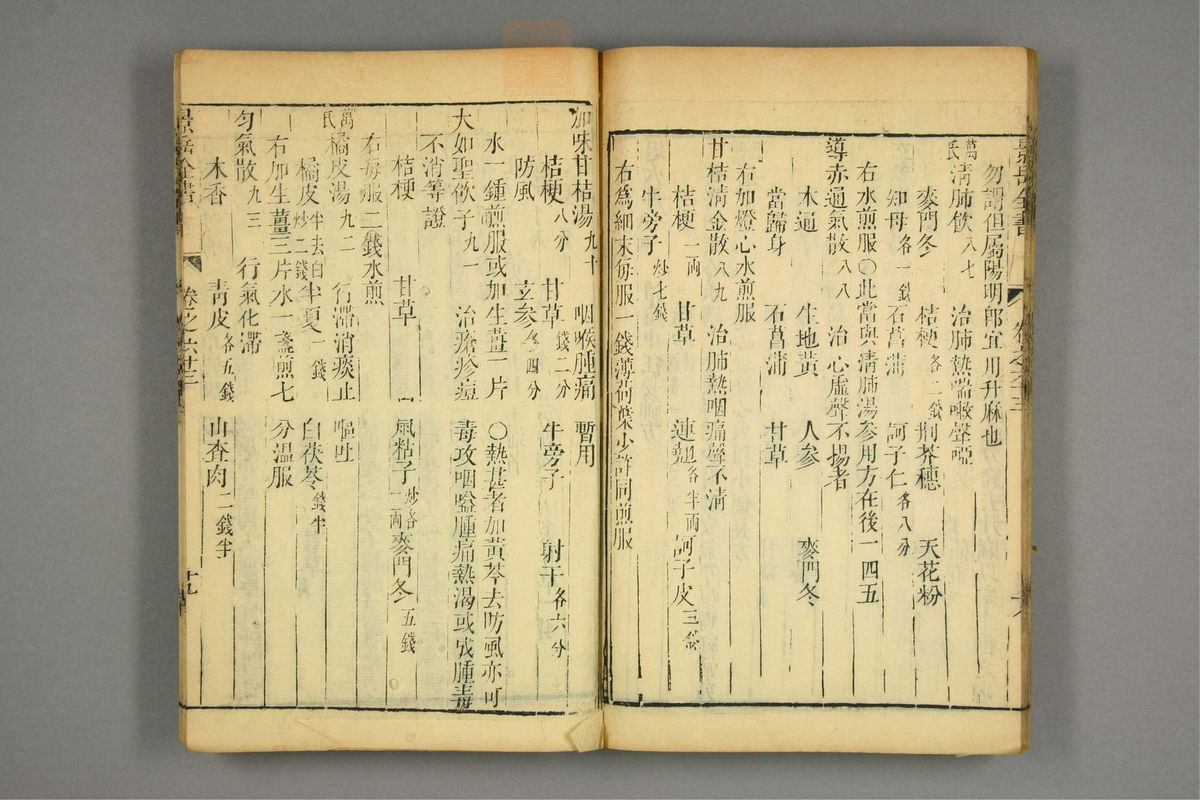 勿謂但屬陽明郎宜用升麻也
萬氏清肺飲 八七 治肺熱喘嗽聲啞
麥門冬 桔梗 各二錢 荆芥穗 天花粉
知母 各一錢 石菖蒲 訶子仁 各八分
右水煎服○此當與清肺湯參用方在後一四五
導赤通氣散 八八 治心虛聲不揚者
木通 生地黃 人參 麥門冬
當歸身 石菖蒲 甘草
右加燈心水煎服
甘桔清金散 八九 治肺熱咽痛聲不清
桔梗 一兩 甘草 連翹 各半兩 訶子皮 三錢
牛旁子 炒七錢
右爲細末每服一錢薄荷葉少許同煎服
加味甘桔湯 九十 咽喉腫痛 暫用
桔梗 八分 甘草 錢二分 牛旁子 射干 各六分
防風 玄參 各四分
水一鍾煎服或加生薑一片 ○熱甚者加黃芩去防風亦可
大如聖飲子 九一 治瘡疹痘 毒攻咽嗌腫痛熱渴或成腫毒
不消等證
桔梗 甘草 鼠粘子 炒各一兩 麥門冬 五錢
右每服二錢水煎
萬氏橘皮湯 九二 行滯消痰止 嘔吐
橘皮 半去白炒二錢 半夏 一錢 白茯苓 錢半
右加生薑三片水一盞煎七 分溫服
勻氣散 九三 行氣化滯
木香 青皮 各五錢 山查肉 二錢半
景岳全書 卷之六十三 十九